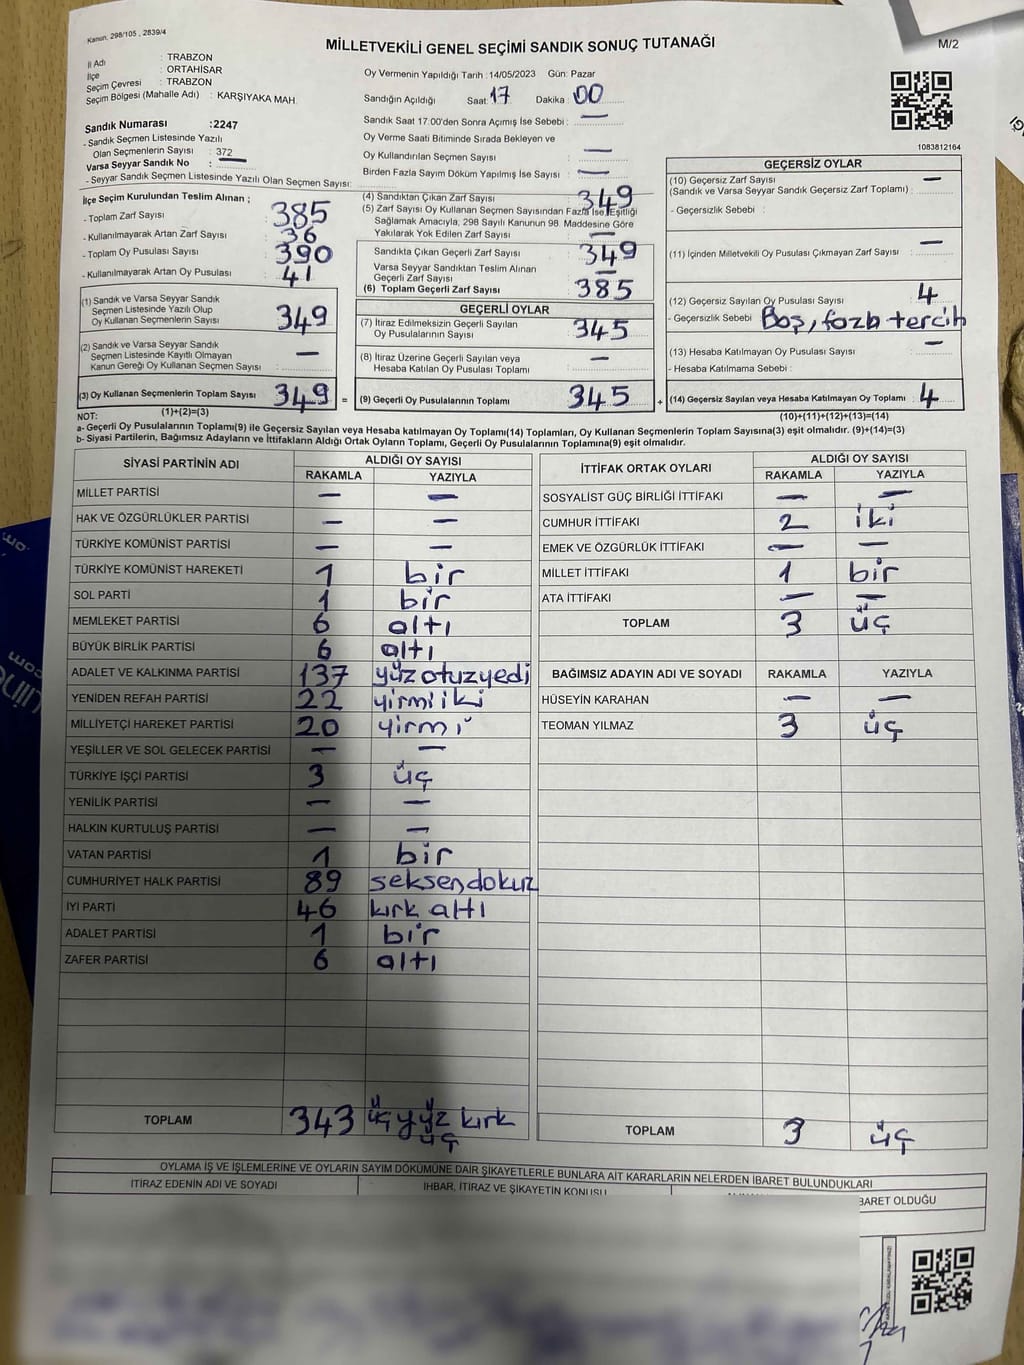 Kanun, 298/105 , 2839/4
MİLLETVEKİLİ GENEL SEÇİMİ SANDIK SONUÇ TUTANAĞI
M/2
İl Adı : TRABZON
İlçe : ORTAHİSAR
Seçim Çevresi : TRABZON
Seçim Bölgesi (Mahalle Adı) : KARŞIYAKA MAH.
Sandık Numarası :2247
- Sandık Seçmen Listesinde Yazılı
Olan Seçmenlerin Sayısı : 372
Varsa Seyyar Sandık No : —
- Seyyar Sandık Seçmen Listesinde Yazılı Olan Seçmen Sayısı:
Oy Vermenin Yapıldığı Tarih :14/05/2023 Gün: Pazar
Sandığın Açıldığı Saat: 17 Dakika : 00
Sandık Saat 17:00'den Sonra Açımış İse Sebebi : —
Oy Verme Saati Bitiminde Sırada Bekleyen ve
Oy Kullandırılan Seçmen Sayısı : —
Birden Fazla Sayım Döküm Yapılmış İse Sayısı : —
1083812164
İlçe Seçim Kurulundan Teslim Alınan ;
- Toplam Zarf Sayısı : 385
- Kullanılmayarak Artan Zarf Sayısı : 36
- Toplam Oy Pusulası Sayısı : 390
- Kullanılmayarak Artan Oy Pusulası : 41
(1) Sandık ve Varsa Seyyar Sandık
Seçmen Listesinde Yazılı Olup
Oy Kullanan Seçmenlerin Sayısı : 349
(2) Sandık ve Varsa Seyyar Sandık
Seçmen Listesinde Kayıtlı Olmayan
Kanun Gereği Oy Kullanan Seçmen Sayısı : —
(3) Oy Kullanan Seçmenlerin Toplam Sayısı : 349 =
(4) Sandıktan Çıkan Zarf Sayısı : 349
(5) Zarf Sayısı Oy Kullanan Seçmen Sayısından Fazla İse, Eşitliği
Sağlamak Amacıyla, 298 Sayılı Kanunun 98. Maddesine Göre
Yakılarak Yok Edilen Zarf Sayısı : —
Sandıkta Çıkan Geçerli Zarf Sayısı : 349
Varsa Seyyar Sandıktan Teslim Alınan
Geçerli Zarf Sayısı : —
(6) Toplam Geçerli Zarf Sayısı : 385
GEÇERLİ OYLAR
(7) İtiraz Edilmeksizin Geçerli Sayılan
Oy Pusulalarının Sayısı : 345
(8) İtiraz Üzerine Geçerli Sayılan veya
Hesaba Katılan Oy Pusulası Toplamı : —
(9) Geçerli Oy Pusulalarının Toplamı : 345 +
GEÇERSİZ OYLAR
(10) Geçersiz Zarf Sayısı —
(Sandık ve Varsa Seyyar Sandık Geçersiz Zarf Toplamı) :
- Geçersizlik Sebebi :
(11) İçinden Milletvekili Oy Pusulası Çıkmayan Zarf Sayısı : —
(12) Geçersiz Sayılan Oy Pusulası Sayısı : 4
- Geçersizlik Sebebi : Boş, fazla tercih
(13) Hesaba Katılmayan Oy Pusulası Sayısı : —
- Hesaba Katılmama Sebebi :
(14) Geçersiz Sayılan veya Hesaba Katılmayan Oy Toplamı : 4
NOT: (1)+(2)=(3)
(10)+(11)+(12)+(13)=(14)
a- Geçerli Oy Pusulalarının Toplamı(9) ile Geçersiz Sayılan veya Hesaba katılmayan Oy Toplamı(14) Toplamları, Oy Kullanan Seçmenlerin Toplam Sayısına(3) eşit olmalıdır. (9)+(14)=(3)
b- Siyasi Partilerin, Bağımsız Adayların ve İttifakların Aldığı Ortak Oyların Toplamı, Geçerli Oy Pusulalarının Toplamına(9) eşit olmalıdır.
SİYASİ PARTİNİN ADI ALDIĞI OY SAYISI
RAKAMLA YAZIYLA
MİLLET PARTİSİ — —
HAK VE ÖZGÜRLÜKLER PARTİSİ — —
TÜRKİYE KOMÜNİST PARTİSİ — —
TÜRKİYE KOMÜNİST HAREKETİ 1 bir
SOL PARTİ 1 bir
MEMLEKET PARTİSİ 6 altı
BÜYÜK BİRLİK PARTİSİ 6 altı
ADALET VE KALKINMA PARTİSİ 137 yüzotuzyedi
YENİDEN REFAH PARTİSİ 22 yirmi iki
MİLLİYETÇİ HAREKET PARTİSİ 20 yirmi
YEŞİLLER VE SOL GELECEK PARTİSİ — —
TÜRKİYE İŞÇİ PARTİSİ 3 üç
YENİLİK PARTİSİ — —
HALKIN KURTULUŞ PARTİSİ — —
VATAN PARTİSİ 1 bir
CUMHURİYET HALK PARTİSİ 89 seksendokuz
İYİ PARTİ 46 kırk altı
ADALET PARTİSİ 1 bir
ZAFER PARTİSİ 6 altı
TOPLAM 343 üçyüz kırk
üç
İTTİFAK ORTAK OYLARI ALDIĞI OY SAYISI
RAKAMLA YAZIYLA
SOSYALİST GÜÇ BİRLİĞİ İTTİFAKI — —
CUMHUR İTTİFAKI 2 iki
EMEK VE ÖZGÜRLÜK İTTİFAKI — —
MİLLET İTTİFAKI 1 bir
ATA İTTİFAKI — —
TOPLAM 3 üç
BAĞIMSIZ ADAYIN ADI VE SOYADI RAKAMLA YAZIYLA
HÜSEYİN KARAHAN — —
TEOMAN YILMAZ 3 üç
TOPLAM 3 üç
OYLAMA İŞ VE İŞLEMLERİNE VE OYLARIN SAYIM DÖKÜMÜNE DAİR ŞİKAYETLERLE BUNLARA AİT KARARLARIN NELERDEN İBARET BULUNDUKLARI
İTİRAZ EDENİN ADI VE SOYADI İHBAR, İTİRAZ VE ŞİKAYETİN KONUSU BARET OLDUĞU